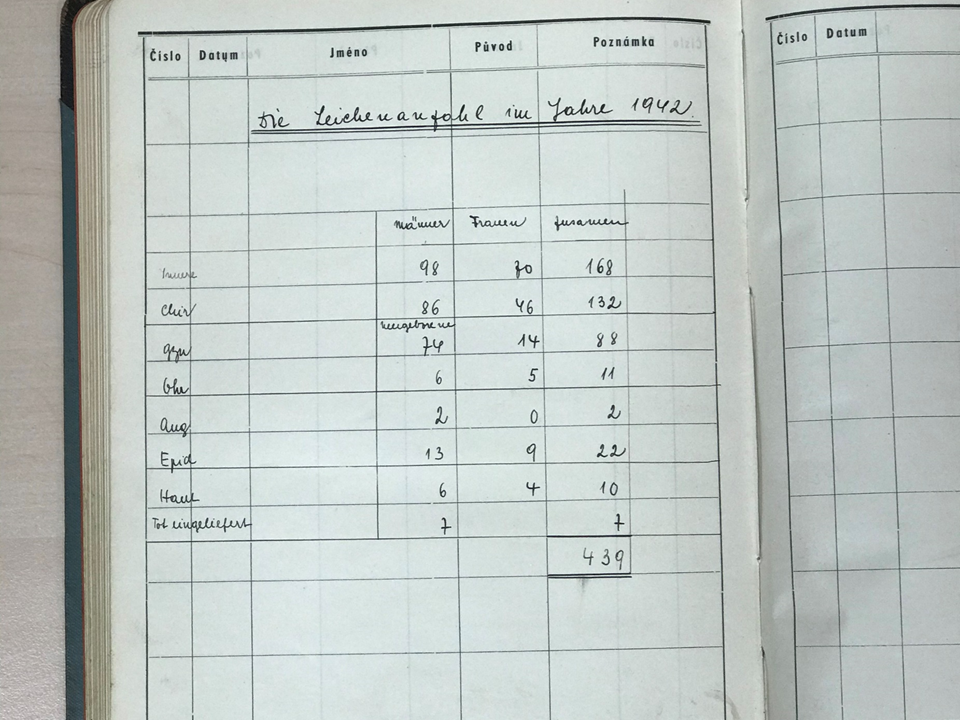 Číslo Datum Jméno Původ Poznámka
Die Leichenanzahl im Jahre 1942.
Männer Frauen zusamen
Innere 98 70 168
Chir 86 46 132
neugeborene
Gyn 74 14 88
Ohr 6 5 11
Aug 2 0 2
Epid 13 9 22
Haut 6 4 10
Tot eingeliefert 7 7
439
Číslo Datum